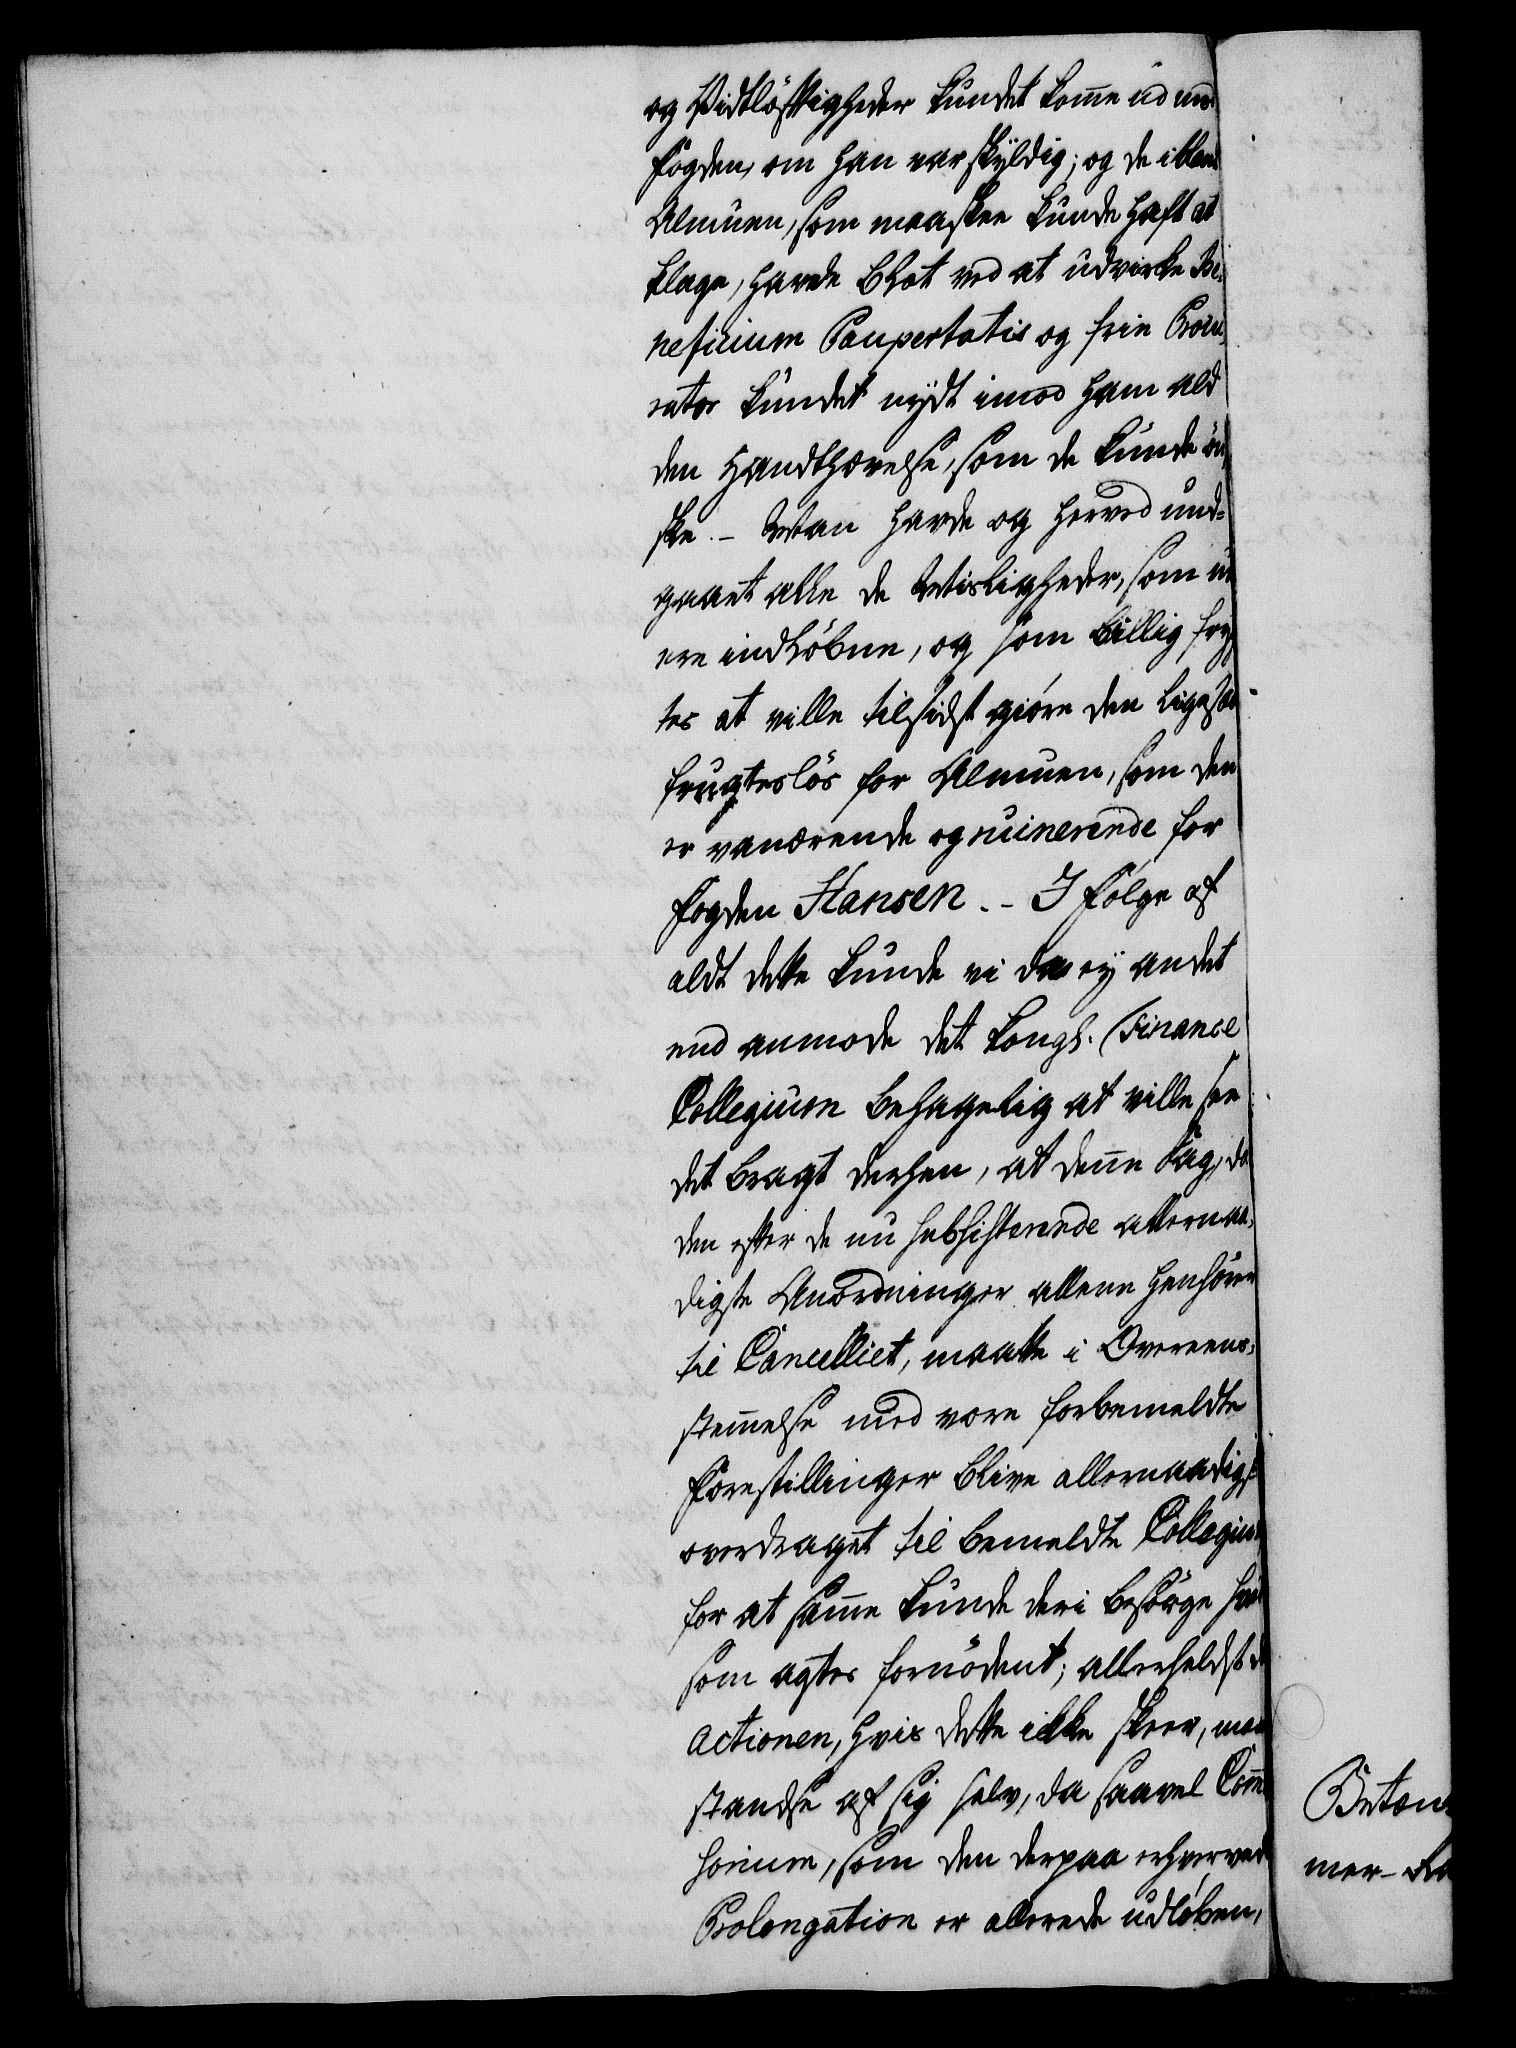 og Vidtløftigheder kundet komme ud med
Fogden, om han var skyldig; og de iblant
Almuen, som maaskee kunde haft at
klage, havde blot ved at udvirke Be-
neficium Paupertatis og frie Procu-
rator kundet nydt imod ham ald
den Handthævelse, som de kunde ön-
ske. - Man havde og herved und-
gaaet alle de Vitlöftigheder, som nu
ere indløbne, og som billig fryg-
tes at ville tilsidst giøre den ligesaa
frugteslös for Almuen, som den
er vanærende og ruinerende for
Fogden Hansen. - I Følge af
aldt dette kunde vi da ey andet
end anmode det Kongl. Finance
Collegium behagelig at ville see
det bragt derhen, at denne Sag, da
den efter de nu subsisterende allernaa-
digste Anordninger allene henhörer
til Cancelliet, maatte i Overeens-
stemelse med vore forbemeldte
Forestillinger blive allernaadigst
overdraget til bemeldte Collegium
for at same kunde deri besörge hvad
som agtes fornödent; allerhelst da
Actionen, hvis dette ikke skeer, maa
standse af sig selv, da saavel Comis-
sorium, som den derpaa erhvervede
Prolongation er allerede udløben,
Betænk
mer-